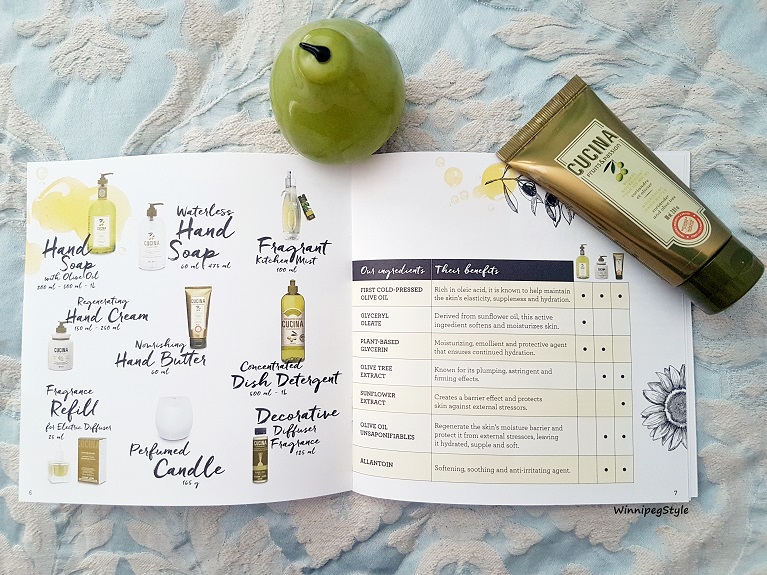 Hand
Soap
with Olive Oil
200 ml - 500 ml - 1L
Waterless
Hand
Soap
60 ml | 475 ml
Fragrant
Kitchen Mist
100 ml
Regenerating
Hand Cream
150 ml - 250 ml
Nourishing
Hand Butter
60 ml
Concentrated
Dish Detergent
500 ml - 1L
Fragrance
Refill
for Electric Diffuser
25 ml
Perfumed
Candle
165 g
Decorative
Diffuser
Fragrance
125 ml
6
Our ingredients Their benefits
FIRST COLD-PRESSED
OLIVE OIL
Rich in oleic acid, it is known to help maintain
the skin's elasticity, suppleness and hydration.
GLYCERYL
OLEATE
Derived from sunflower oil, this active
ingredient softens and moisturizes skin.
PLANT-BASED
GLYCERIN
Moisturizing, emollient and protective agent
that ensures continued hydration.
OLIVE TREE
EXTRACT
Known for its plumping, astringent and
firming effects.
SUNFLOWER
EXTRACT
Creates a barrier effect and protects
skin against external stressors.
OLIVE OIL
UNSAPONIFIABLES
Regenerate the skin's moisture barrier and
protect it from external stressors, leaving
it hydrated, supple and soft.
ALLANTOIN
Softening, soothing and anti-irritating agent.
7
CUCINA
FRUITS & PASSION
CUCINA
CUCINA
CUCINA
CUCINA
WinnipegStyle